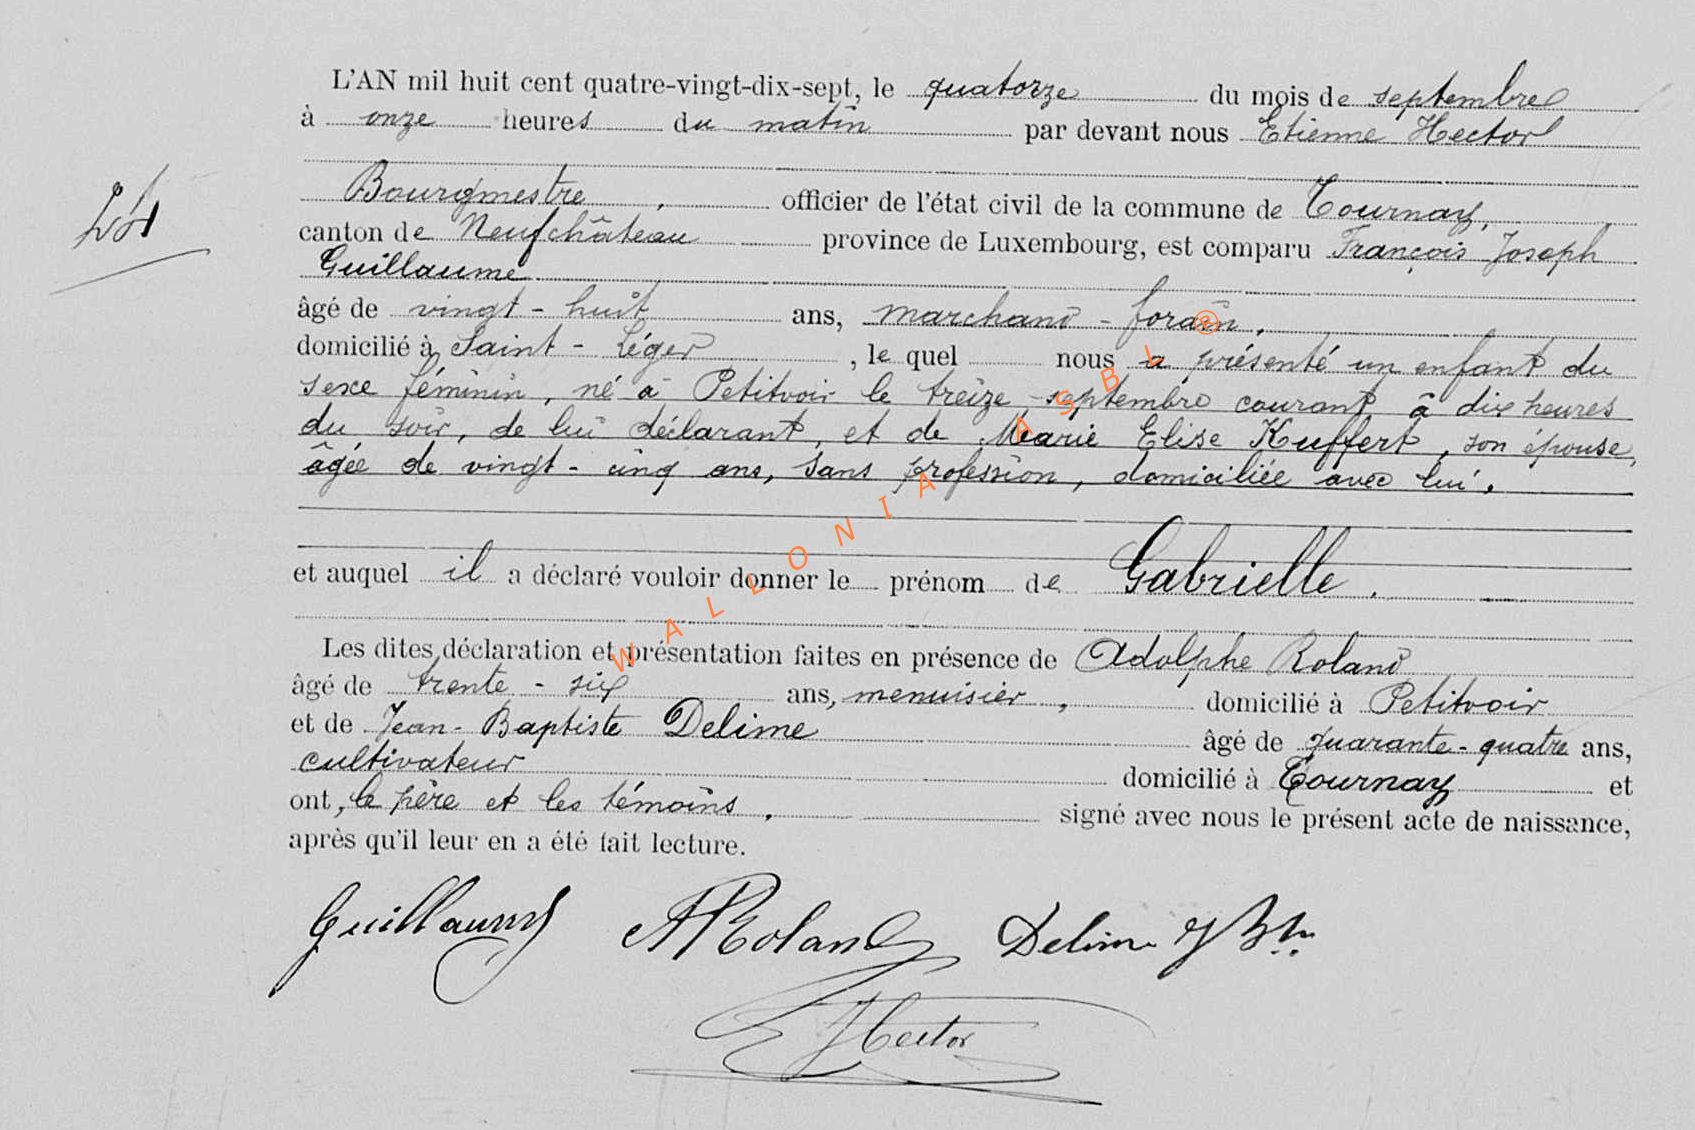 L'AN mil huit cent quatre-vingt-dix-sept, le quatorze du mois de septembre
à onze heures du matin par devant nous Etienne Hector
Bourgmestre, officier de l'état civil de la commune de Tournay,
24
canton de Neufchâteau province de Luxembourg, est comparu François Joseph
Guillaume
âgé de vingt-huit ans, marchand-forain,
domicilié à Saint-Léger, le quel nous a présenté un enfant du
sexe féminin, né à Petitvoir le treize septembre courant, à dix heures
du soir, de lui déclarant, et de Marie Elise Kuffert, son épouse,
âgée de vingt-cinq ans, sans profession, domiciliée avec lui.
et auquel il a déclaré vouloir donner le prénom de Gabrielle.
Les dites déclaration et présentation faites en présence de Adolphe Roland
âgé de trente-six ans, menuisier, domicilié à Petitvoir
et de Jean-Baptiste Delime âgé de quarante-quatre ans,
cultivateur domicilié à Tournay et
ont, le père et les témoins, signé avec nous le présent acte de naissance,
après qu'il leur en a été fait lecture.
Guillaume A Roland Delime J Bte
E Hector
WALLONIA ASBL ®